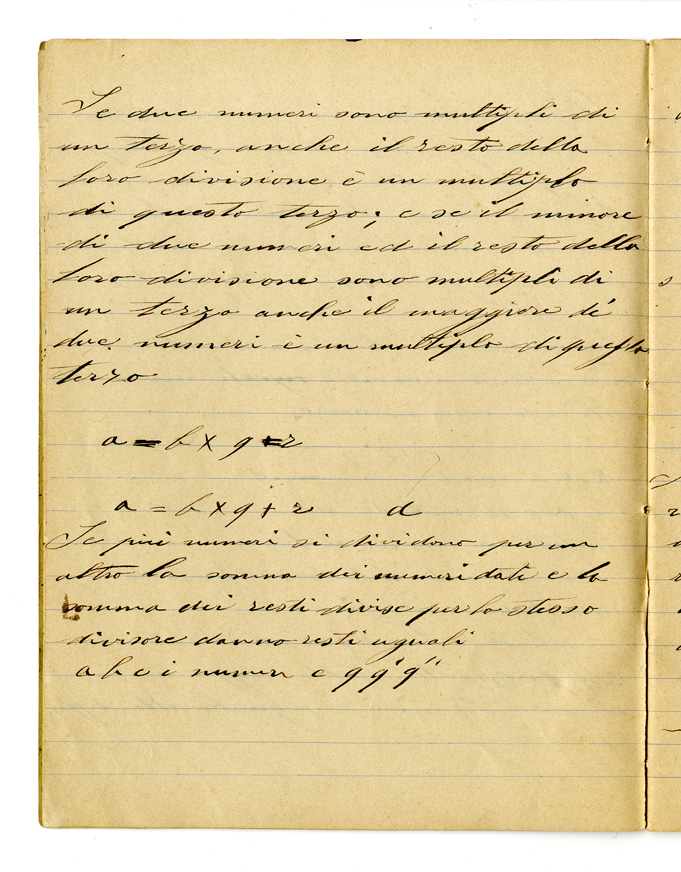 Se due numeri sono multipli di
un terzo, anche il resto della
loro divisione è un multiplo
di questo terzo; e se il minore
di due numeri ed il resto della
loro divisione sono multipli di
un terzo anche il maggiore de'
due numeri è un multiplo di questo
terzo
a = b × q + r
a = b × q + r d
Se più numeri si dividono per un
altro la somma dei numeri dati e la
somma dei resti divise per lo stesso
divisore danno resti uguali
a b c i numeri e q q' q''